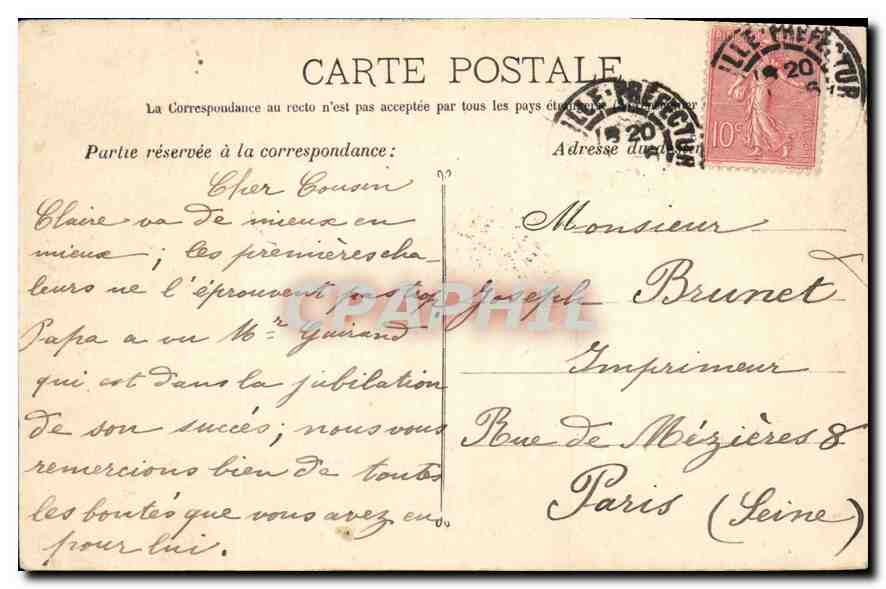 CARTE POSTALE
La Correspondance au recto n'est pas acceptée par tous les pays
Partie réservée à la correspondance:
Adresse du
ILLE-PREFECTUR
20
ILLE-PREFECTUR
20
10c
Cher Cousin
Claire va de mieux en
mieux; les premières cha-
leurs ne l'éprouvent pas trop
Papa a vu Mr Guirand
qui est dans la jubilation
de son succés; nous vous
remercions bien de toutes
les bontés que vous avez eu
pour lui.
Monsieur
Joseph Brunet
Imprimeur
Rue de Mézières 8
Paris (Seine)
CPAPHIL